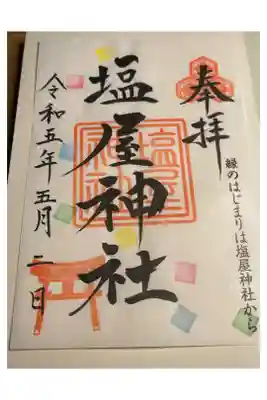 奉拝
縁のはじまりは塩屋神社から
塩屋神社
塩屋神社
令和五年五月二日